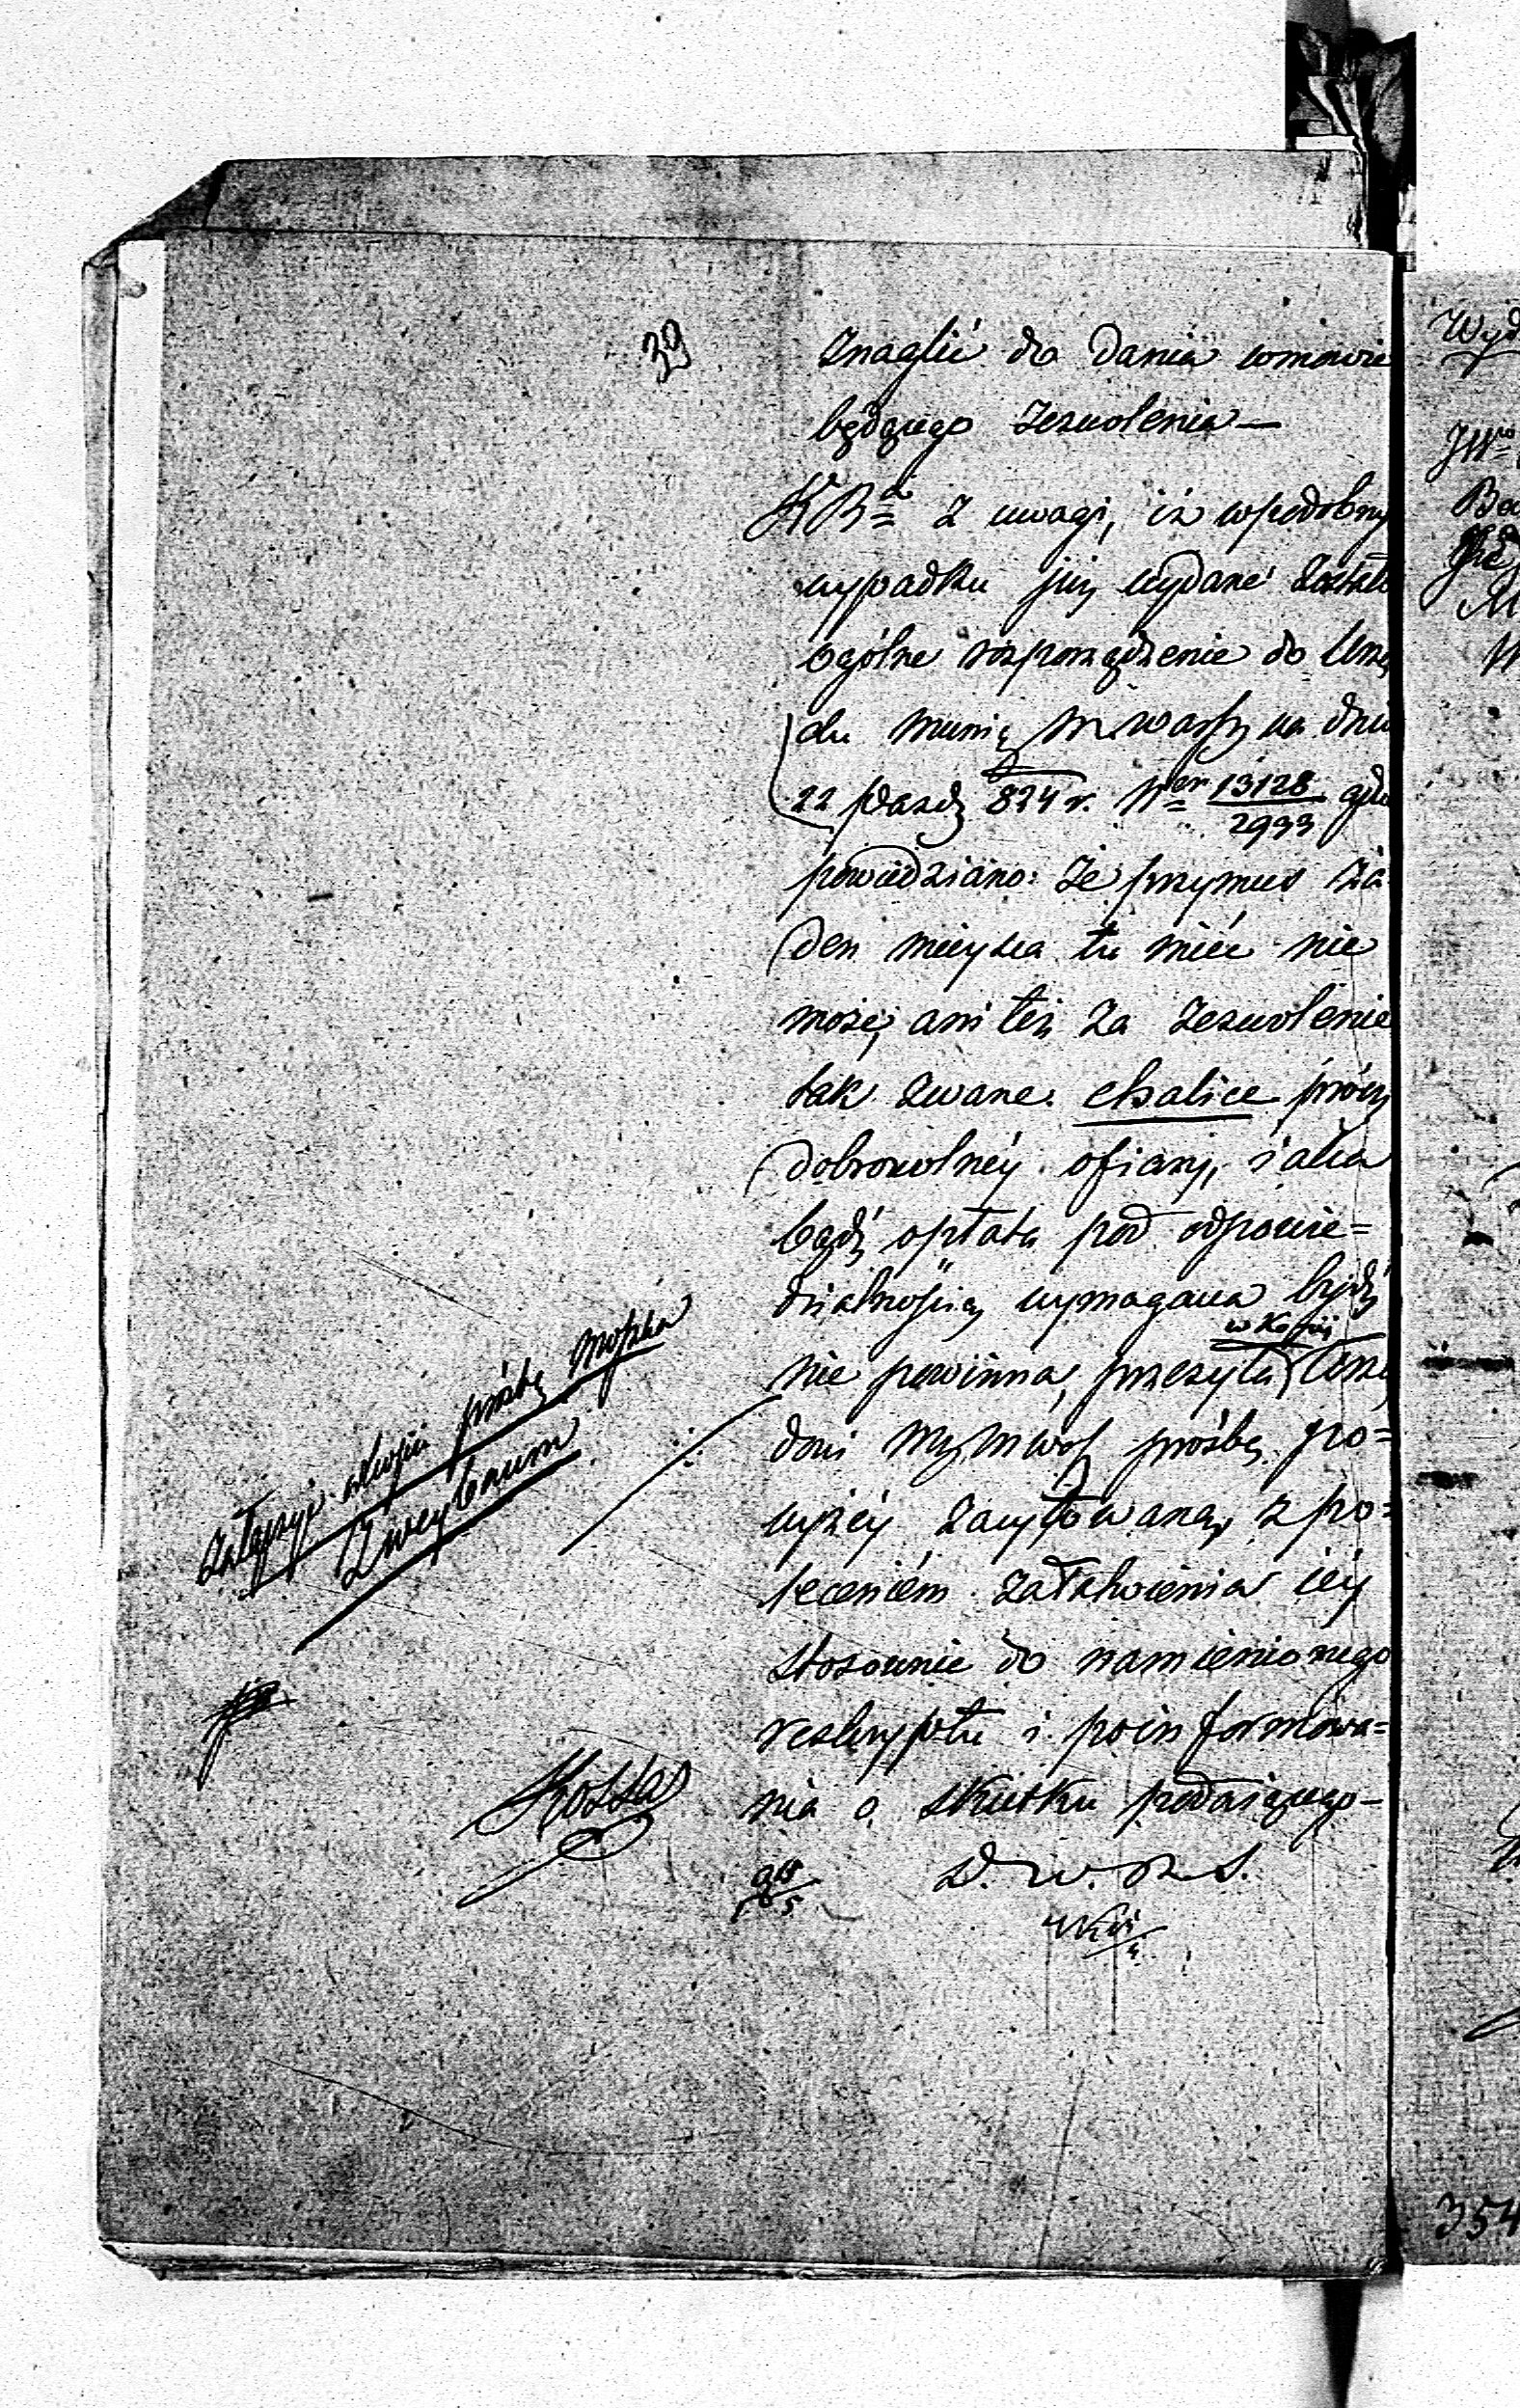 39
znaglić do dania wmowie
będącego zezwolenia —
KRz z uwagi, iż w podobnym
wypadku już wydane zostało
ogólne rozporządzenie do Urzę
du Munic M Warszy na dniu
22 Pazdz 824 r. Ner 13128/2933 gdzie
powiedziano: że przymus ża
den mieysca tu mieć nie
może, ani też za zezwolenie
tak zwane chalice prócz
dobrowolnéy ofiary, iaka
bądź opłata pod odpowie=
dzialnością wymagana bydź
nie powinna, przesyła w kopii
dowi Mu M Wars prośbę po=
wyżéy zacytowaną, z po=
leceniem załatwienia iéy
stosownie do namienionego
reskryptu i poinformowa=
nia o skutku podaiącego —
D. W. R. S.
załączyć prośbę Moszka
Zweybaum
Kossa
354